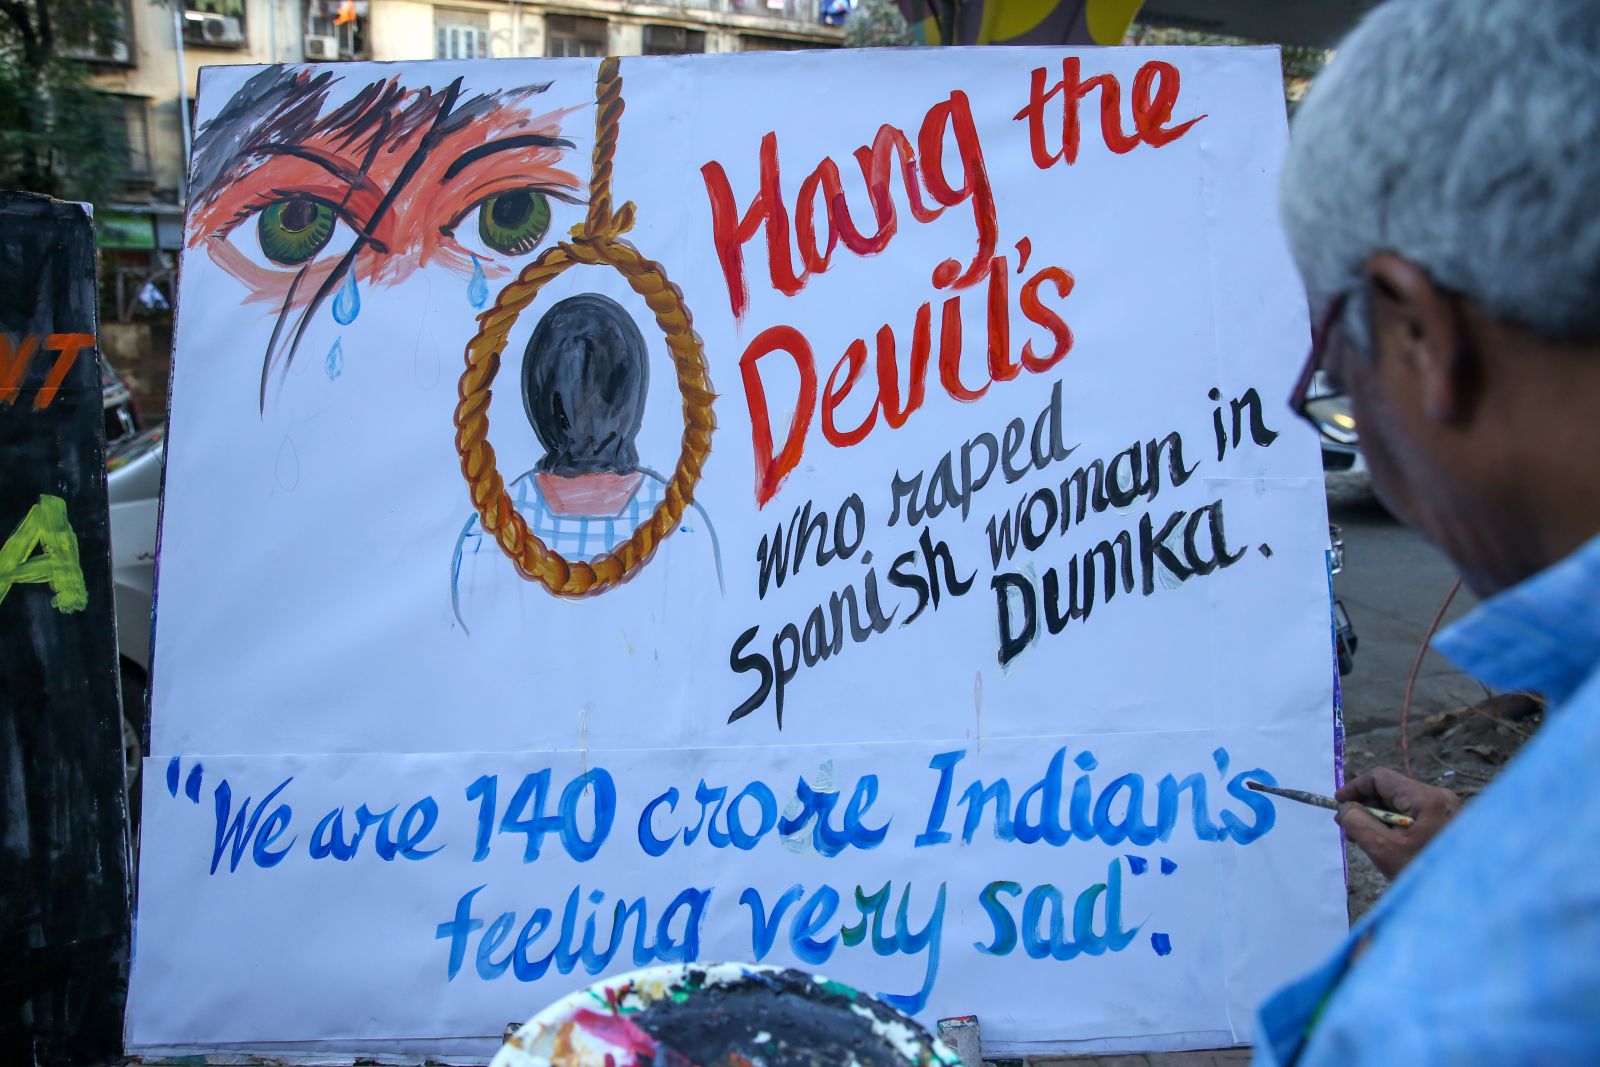 Hang the
Devil's
who raped
Spanish woman in
Dumka.
"We are 140 crore Indian's
feeling very sad".
NT
A